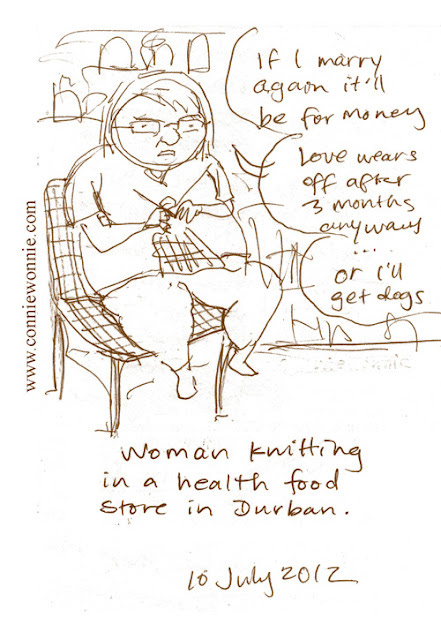 If I marry
again it'll
be for money
Love wears
off after
3 months
anyways
...
or i'll
get dogs
www.conniewonnie.com
Woman knitting
in a health food
store in Durban.
10 July 2012